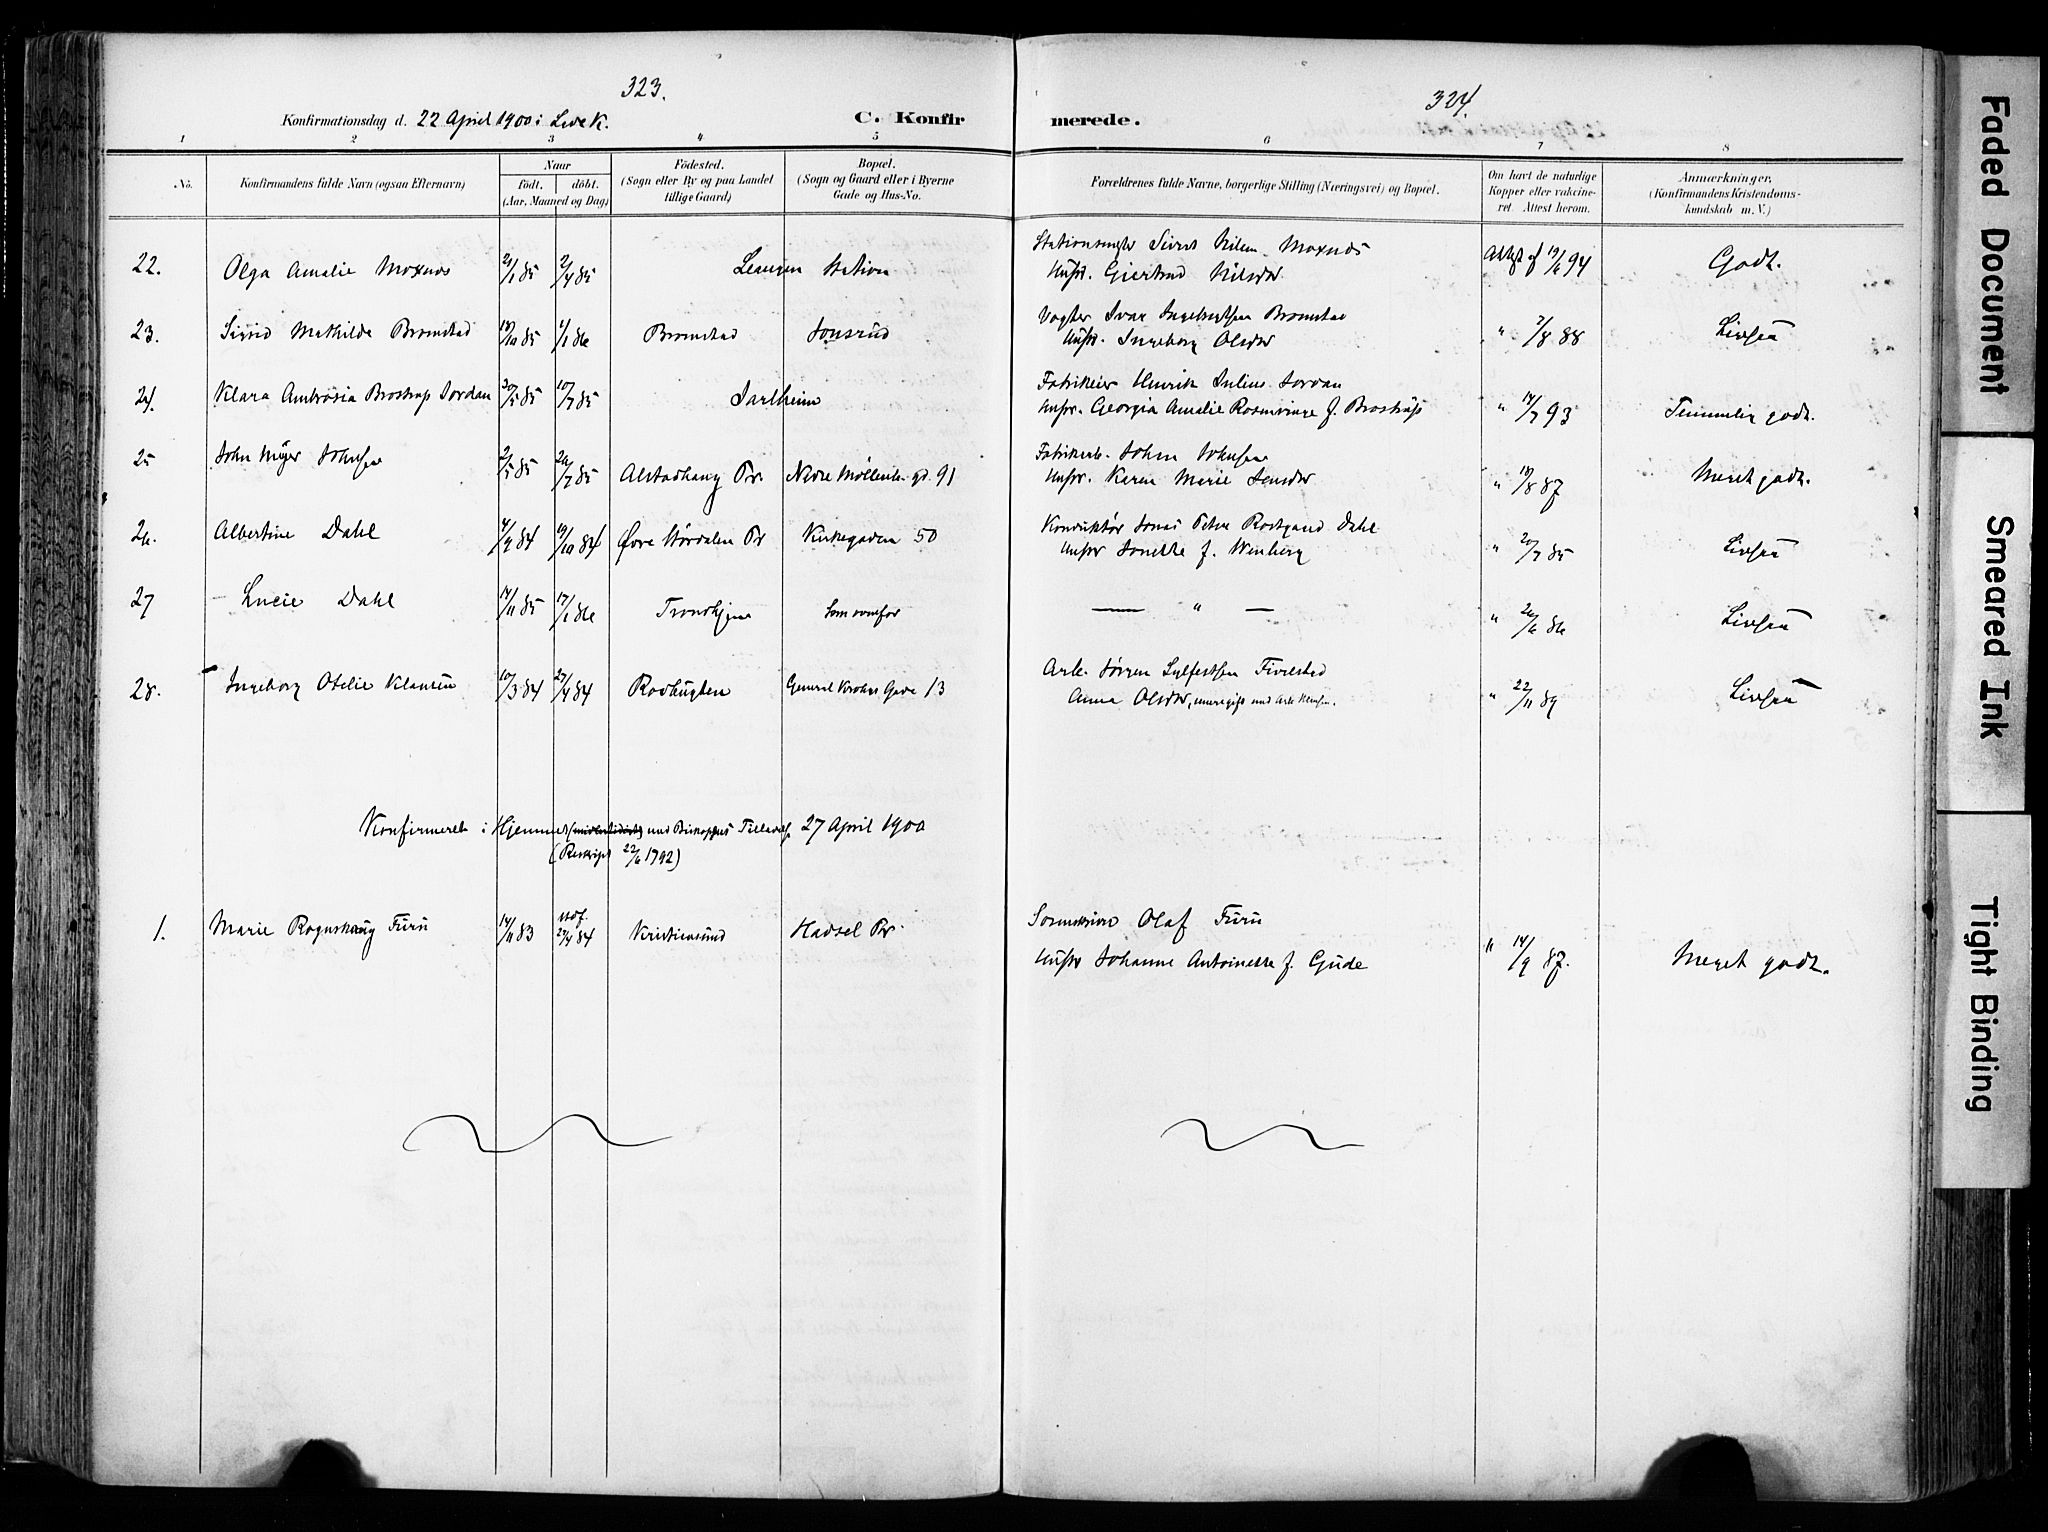 323.
324.
Konfirmationsdag d. 22 April 1900 i Lade K.
C. Konfirmerede.
1 2 3 4 5 6 7 8
No.
Konfirmandens fulde Navn (ogsaa Efternavn)
Naar
födt. döbt.
(Aar, Maaned og Dag)
Födested.
(Sogn eller By og paa Landet
tillige Gaard)
Bopæl.
(Sogn og Gaard eller i Byerne
Gade og Hus-No.
Forældrenes fulde Navne, borgerlige Stilling (Næringsvei) og Bopæl.
Om havt de naturlige
Kopper eller vakcine-
ret. Attest herom.
Anmærkninger,
(Konfirmandens Kristendoms-
kundskab m. V.)
22. Olga Amalie Moxnes 21/1 85 2/4 85 Leangen Station
Stationsmester Sivert Moxnæs Attest af 19/6 94 Godt.
Hustr. Gjertrud Nilsdtr
23. Sigrid Mathilde Bromstad 18/10 85 1/1 86 Bromstad Jonsrud
Vogter Ivar Ingebrigtsen Bromstad " 2/8 88
Hustr. Ingeborg Olsdtr
24. Klara Ambrosia Brostrup Jordan 30/5 85 10/7 85 Jarlheim
Fabrikeier Henrik Julius Jordan
Hustr. Georgia Amalie Rosenvinge f. Brostrup " 14/7 93 Temmelig godt.
25 John Meyer Johnsen 2/5 85 26/7 85 Alstadhaug Pr. Nedre Møllenb. gd. 91
Fabrikarb. Johan Johnsen
Hustr. Karen Marie Jensdtr " 18/8 87 Meget godt.
26. Albertine Dahl 4/9 84 19/10 84 Øvre Stördalen Pr Kirkegaden 50
Konduktør Jonas Peter Rostgaard Dahl
Hustr Jonette f. Wenberg " 20/7 85
27 Lucie Dahl 14/11 85 17/1 86 Trondhjem Som ovenfor
— " — " 26/6 86
28. Ingeborg Otelie Klausen 10/3 84 27/4 84 Rodhugten General Krohgs Gade 13
Arb. Jørgen Sylfestsen Fivelstad
Anna Olsdtr, " 22/11 89
Konfirmeret i Hjemmet med Biskoppens Tilladelse 27 April 1900
(Reskript 22/6 1792)
1. Marie Rognskaug Furu 14/11 83 stadf. 27/4 84 Kristiansund Hadsel Pr.
Sorenskriver Olaf Furu
Hustr Johanne Antoinette f. Gude " 14/9 87. Meget godt.
Faded Document
Smeared Ink
Tight Binding